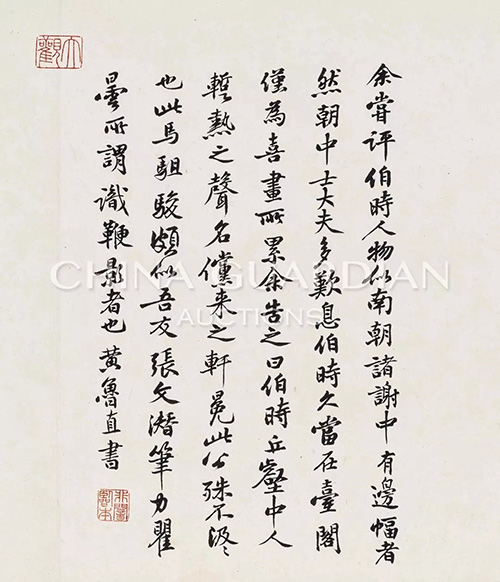 大觀
余嘗評伯時人物似南朝諸謝中有邊幅者
然朝中士大夫多歎息伯時久當在臺閣
僅為喜畫所累余告之曰伯時丘壑中人
暫熱之聲名儻来之軒冕此公殊不汲〻
也此馬駔駿頗似吾友張文潛筆力瞿
曇所謂識鞭影者也黄魯直書
CHINA GUARDIAN
AUCTIONS